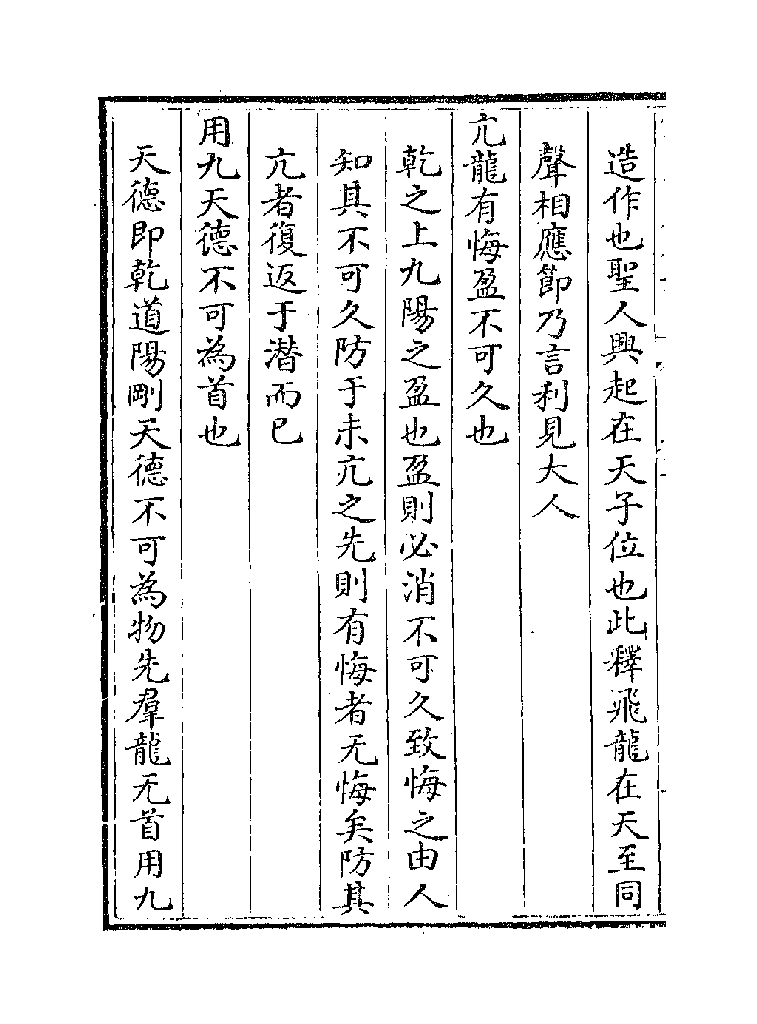 造作也聖人興起在天子位也此釋飛龍在天至同
聲相應節乃言利見大人
亢龍有悔盈不可久也
乾之上九陽之盈也盈則必消不可久致悔之由人
知其不可久防于未亢之先則有悔者无悔矣防其
亢者復返于潛而已
用九天德不可為首也
天德即乾道陽剛天德不可為物先羣龍无首用九